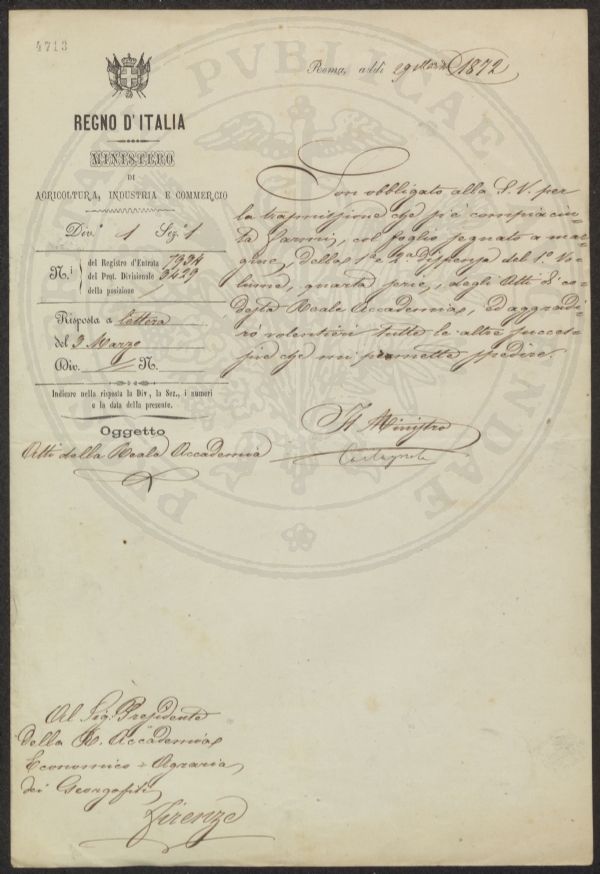 4713
Roma, addì 29 Marzo 1872
REGNO D'ITALIA
MINISTERO
DI
AGRICOLTURA, INDUSTRIA E COMMERCIO
Div.ª 1 Sez.ª 1
N.i
del Registro d'Entrata 7934
del Prot. Divisionale 3429
della posizione
Risposta a lettera
del 9 Marzo
Div. N.
Indicare nella risposta la Div., la Sez., i numeri
e la data della presente.
Oggetto
Atti della Reale Accademia
Son obbligato alla S. V. per
la trasmissione che si è compiaciu-
ta farmi, col foglio segnato a mar-
gine, della 1ª e 2ª dispensa del 1.º Vo-
lume, quarta serie, degli Atti di co-
desta Reale Accademia, ed aggradi-
rò volentieri tutte le altre succes-
sive che mi promette spedire.
Il Ministro
Castagnola
Al Sig. Presidente
della R. Accademia
Economico-Agraria
dei Georgofili
Firenze
PUBLICAE